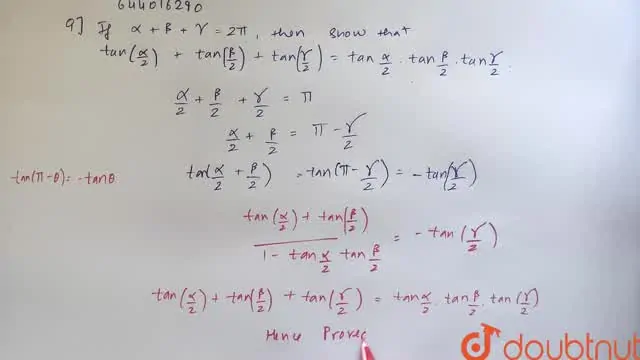 644016290
9] If α + β + γ = 2π, then show that
tan(α/2) + tan(β/2) + tan(γ/2) = tan α/2 . tan β/2 . tan γ/2.
α/2 + β/2 + γ/2 = π
α/2 + β/2 = π - γ/2
tan(π-θ) = -tanθ tan(α/2 + β/2) = tan(π - γ/2) = -tan(γ/2)
tan(α/2) + tan(β/2) / 1 - tan α/2 tan β/2 = - tan(γ/2)
tan(α/2) + tan(β/2) + tan(γ/2) = tan α/2 . tan β/2 . tan(γ/2)
Hence Proved
doubtnut